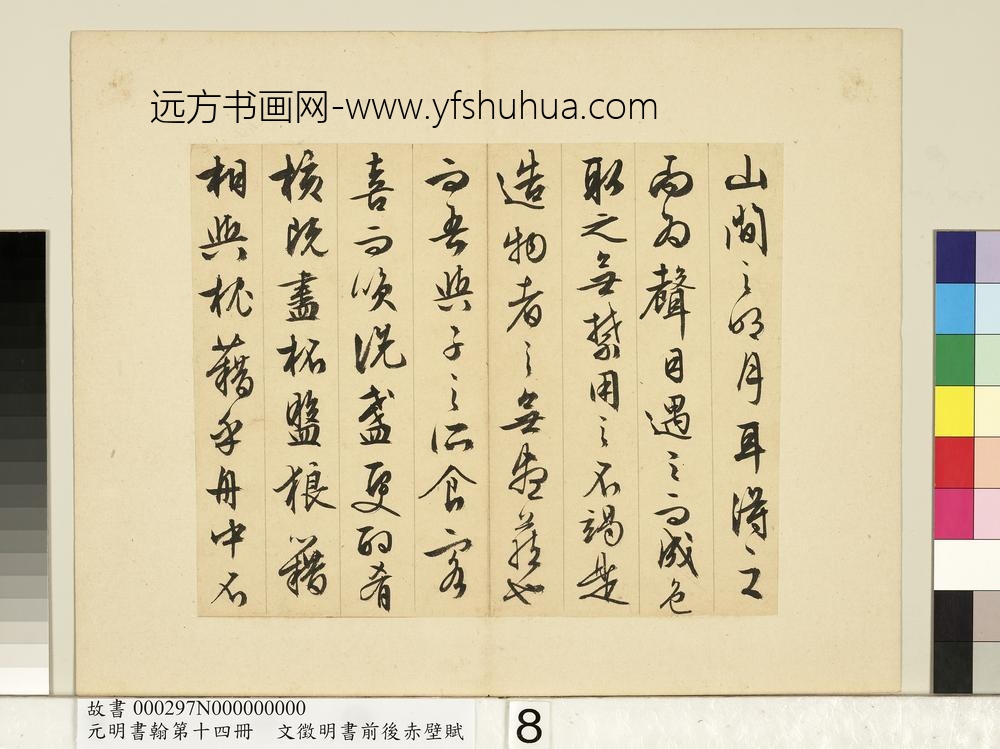 远方书画网-www.yfshuhua.com
山間之明月耳得之
而為聲目遇之而成色
取之無禁用之不竭是
造物者之無盡藏也
而吾與子之所食客
喜而笑洗盞更酌肴
核既盡杯盤狼籍
相與枕藉乎舟中不
故書 000297N000000000
元明書翰第十四冊 文徵明書前後赤壁賦
8